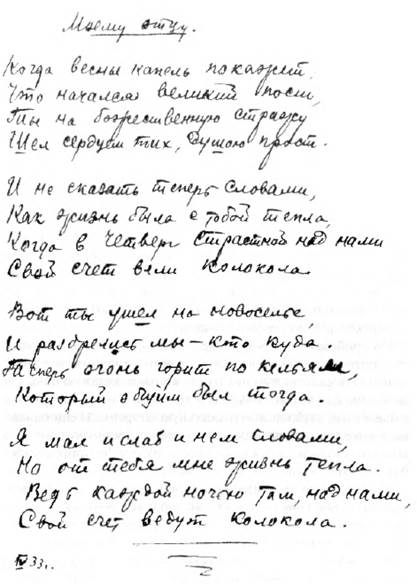 Моему отцу.
Когда весны капель покажет,
Что начался великий пост,
Ты на божественную стражу
Шел сердцем тих, душою прост.
И не сказать теперь словами,
Как жизнь была с тобой тепла,
Когда в Четверг Страстной над нами
Свой счет вели колокола.
Вот ты ушел на новоселье,
И разбрелись мы – кто куда.
Теперь огонь горит по кельям,
Который общим был тогда.
Я мал и слаб и нем словами,
Но от тебя мне жизнь тепла.
Ведь каждой ночью там, над нами,
Свой счет ведут колокола.
IV 33 г.